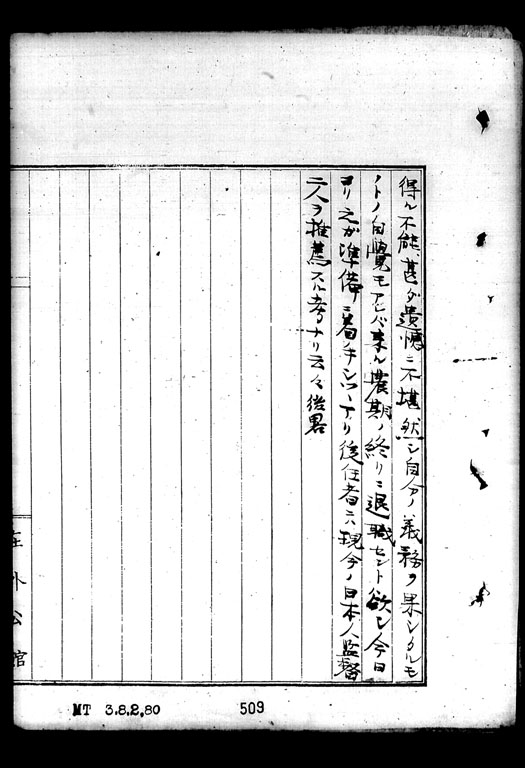 得ル不能甚ダ遺憾ニ不堪然シ自分ノ義務ヲ果シタルモ
ノトノ自覚モアレバ来ル農期ノ終リニ退職セント欲シ今日
ヨリ之ガ準備ニ着手シツヽアリ後任者ニハ現今ノ日本人監督
二人ヲ推薦スル考ナリ云々後畧
在外公館
MT 3.8.2.80
509